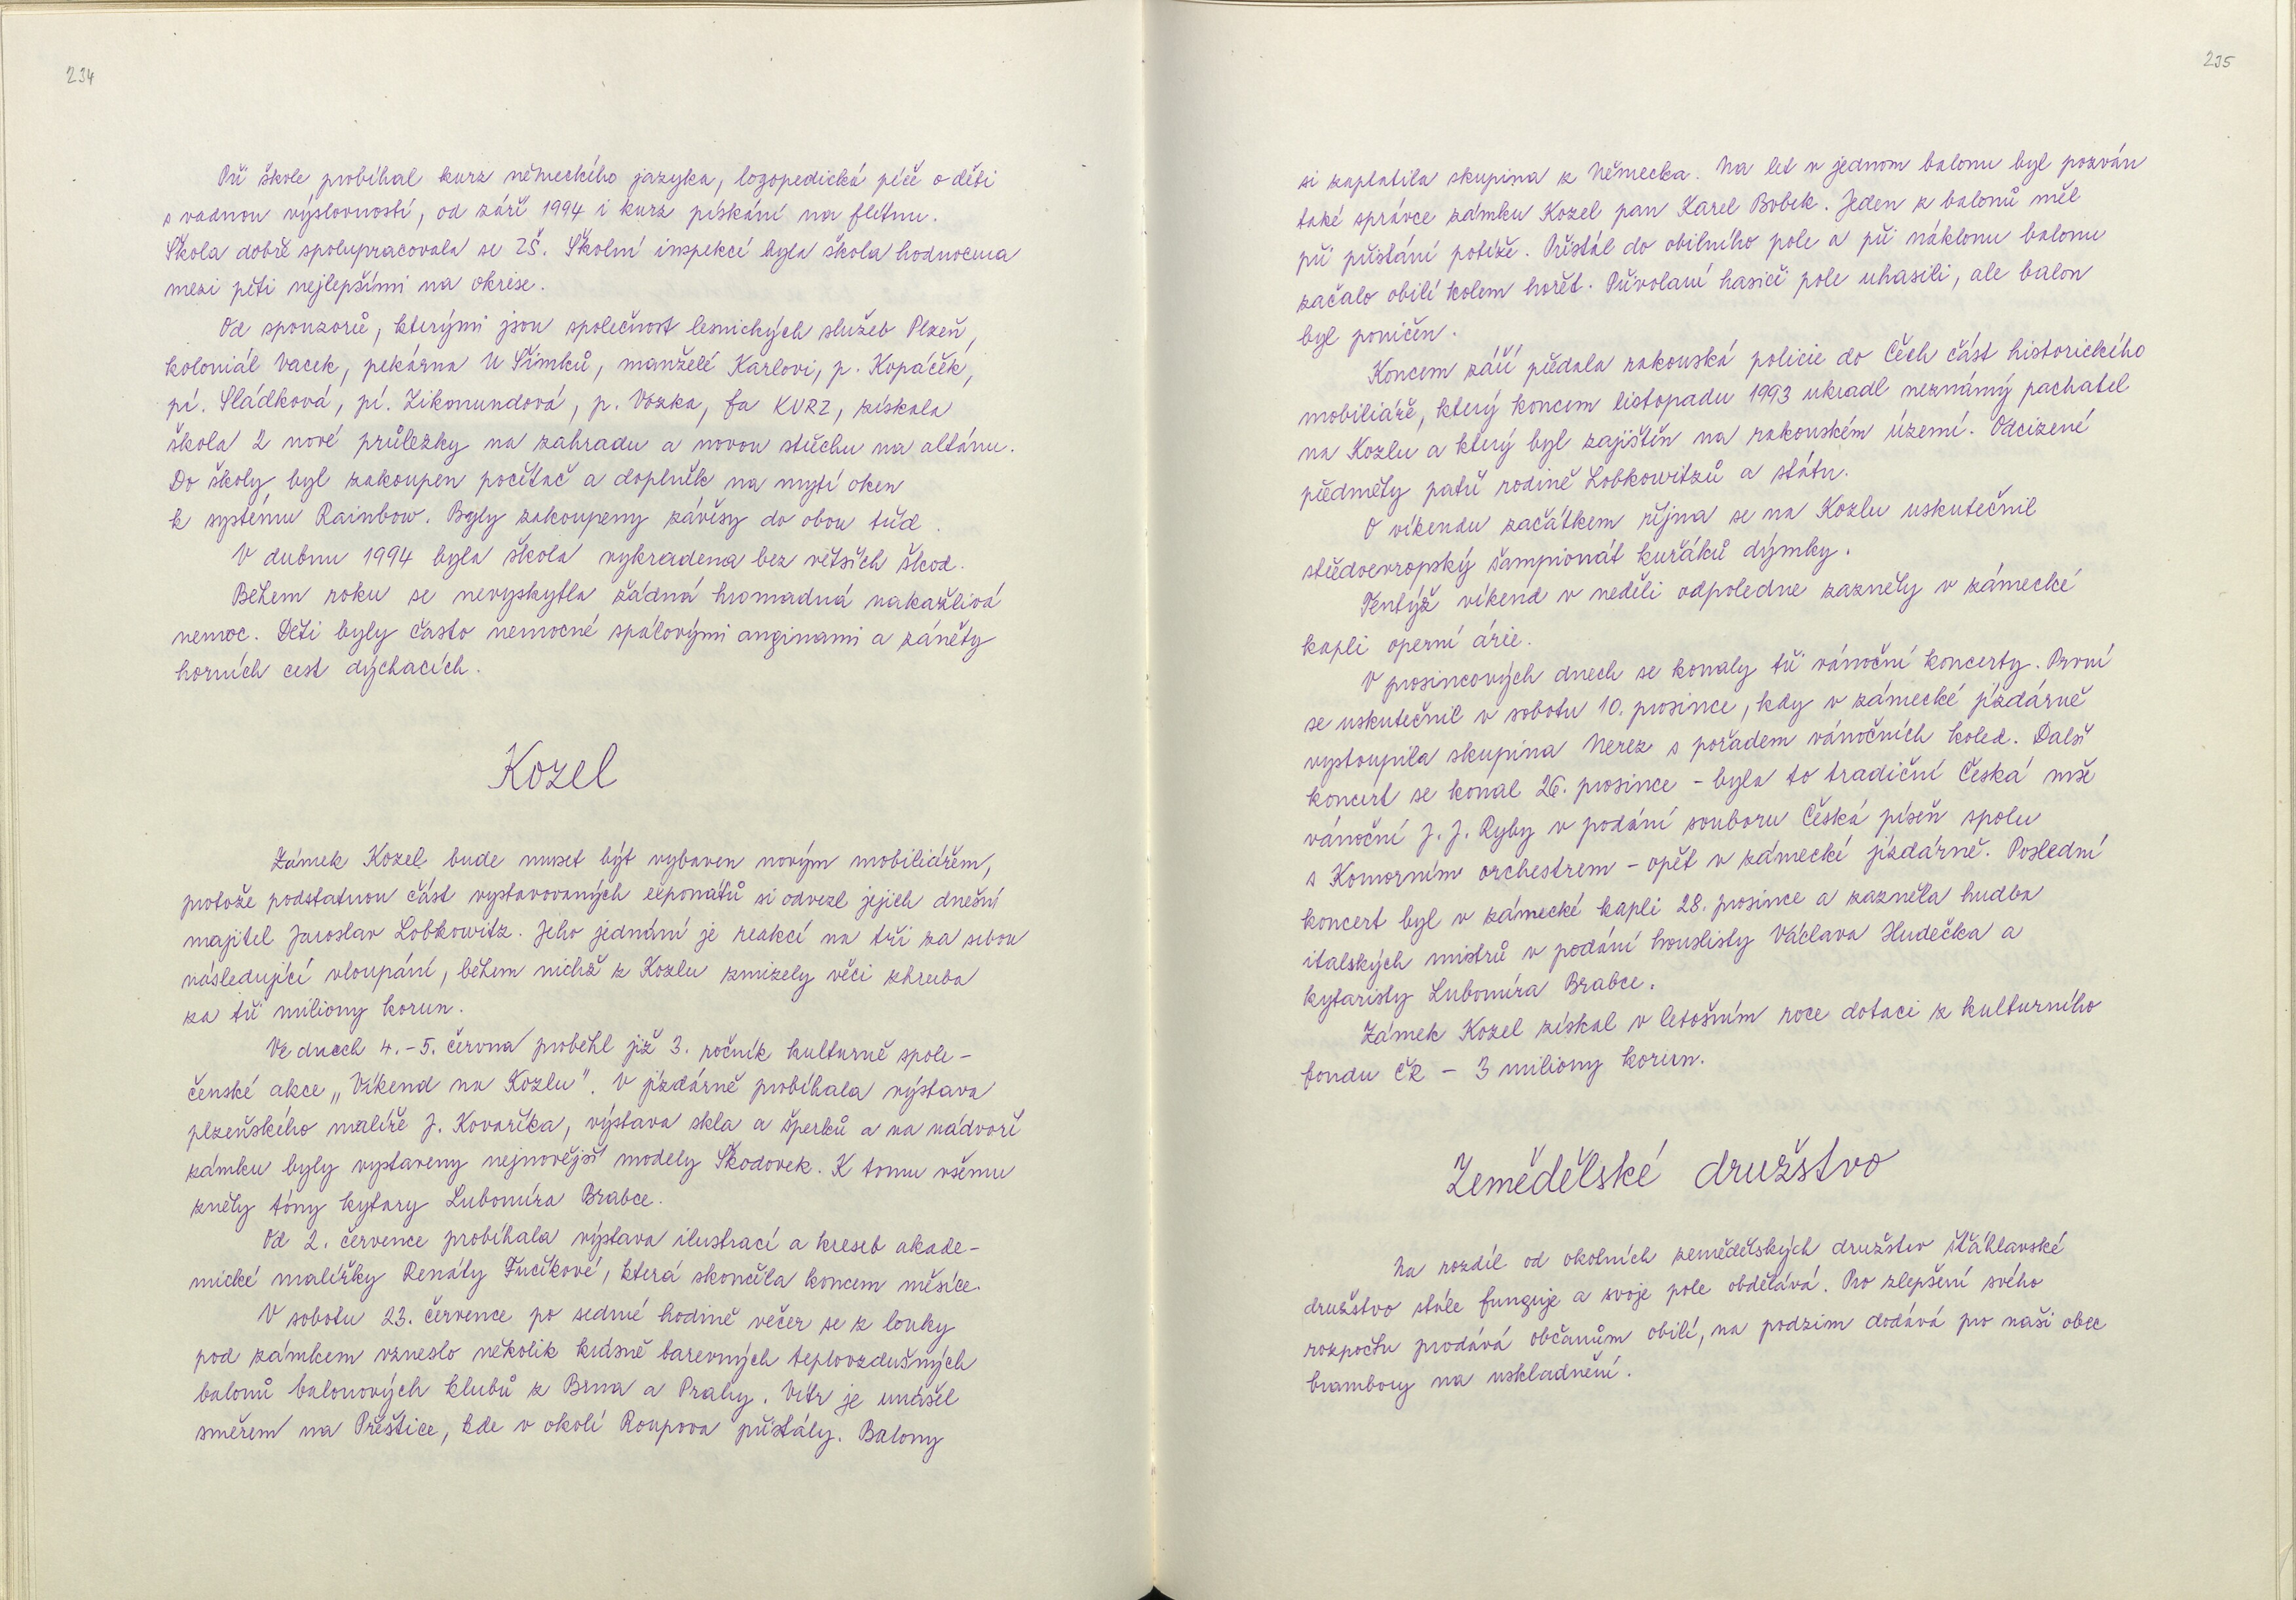 234
Při škole probíhal kurz německého jazyka, logopedická péče o děti
s vadnou výslovností, od září 1994 i kurz pískání na flétnu.
Škola dobře spolupracovala se ZŠ. Školní inspekcí byla škola hodnocena
mezi pěti nejlepšími na okrese.
Od sponzorů, kterými jsou společnost lesnických služeb Plzeň,
koloniál Vacek, pekárna U Šimků, manželé Karlovi, p. Kopáček,
pí. Sládková, pí. Zikmundová, p. Vozka, fa KURZ, získala
škola 2 nové průlezky na zahradu a novou střechu na altánu.
Do školy byl zakoupen počítač a doplněk na mytí oken
k systému Rainbow. Byly zakoupeny závěsy do obou tříd.
V dubnu 1994 byla škola vykradena bez větších škod.
Během roku se nevyskytla žádná hromadná nakažlivá
nemoc. Děti byly často nemocné spálovými anginami a záněty
horních cest dýchacích.
Kozel
Zámek Kozel bude muset být vybaven novým mobiliářem,
protože podstatnou část vystavovaných exponátů si odvezl jejich dnešní
majitel Jaroslav Lobkowitz. Jeho jednání je reakcí na tři za sebou
následující vloupání, během nichž z Kozlu zmizely věci zhruba
za tři miliony korun.
Ve dnech 4.-5. června proběhl již 3. ročník kulturně spole-
čenské akce „Víkend na Kozlu". V jízdárně probíhala výstava
plzeňského malíře J. Kovaříka, výstava skla a šperků a na nádvoří
zámku byly vystaveny nejnovější modely Škodovek. K tomu všemu
zněly tóny kytary Lubomíra Brabce.
Od 2. července probíhala výstava ilustrací a kreseb akade-
mické malířky Renáty Fučíkové, která skončila koncem měsíce.
V sobotu 23. července po sedmé hodině večer se z louky
pod zámkem vzneslo několik krásně barevných teplovzdušných
balonů balonových klubů z Brna a Prahy. Vítr je unášel
směrem na Přeštice, kde v okolí Roupova přistály. Balony
235
si zaplatila skupina z Německa. Na let v jednom balonu byl pozván
také správce zámku Kozel pan Karel Bobek. Jeden z balonů měl
při přistání potíže. Přistál do obilního pole a při náklonu balonu
začalo obilí kolem hořet. Přivolaní hasiči pole uhasili, ale balon
byl poničen.
Koncem září předala rakouská policie do Čech část historického
mobiliáře, který koncem listopadu 1993 ukradl neznámý pachatel
na Kozlu a který byl zajištěn na rakouském území. Odcizené
předměty patří rodině Lobkowitzů a státu.
O víkendu začátkem října se na Kozlu uskutečnil
středoevropský šampionát kuřáků dýmky.
Tentýž víkend v neděli odpoledne zazněly v zámecké
kapli operní árie.
V prosincových dnech se konaly tři vánoční koncerty. První
se uskutečnil v sobotu 10. prosince, kdy v zámecké jízdárně
vystoupila skupina Nerez s pořadem vánočních koled. Další
koncert se konal 26. prosince - byla to tradiční Česká mše
vánoční J. J. Ryby v podání souboru Česká píseň spolu
s Komorním orchestrem - opět v zámecké jízdárně. Poslední
koncert byl v zámecké kapli 28. prosince a zazněla hudba
italských mistrů v podání houslisty Václava Hudečka a
kytaristy Lubomíra Brabce.
Zámek Kozel získal v letošním roce dotaci z kulturního
fondu ČR - 3 miliony korun.
Zemědělské družstvo
Na rozdíl od okolních zemědělských družstev šťáhlavské
družstvo stále funguje a svoje pole obdělává. Pro zlepšení svého
rozpočtu prodává občanům obilí, na podzim dodává pro naši obec
brambory na uskladnění.